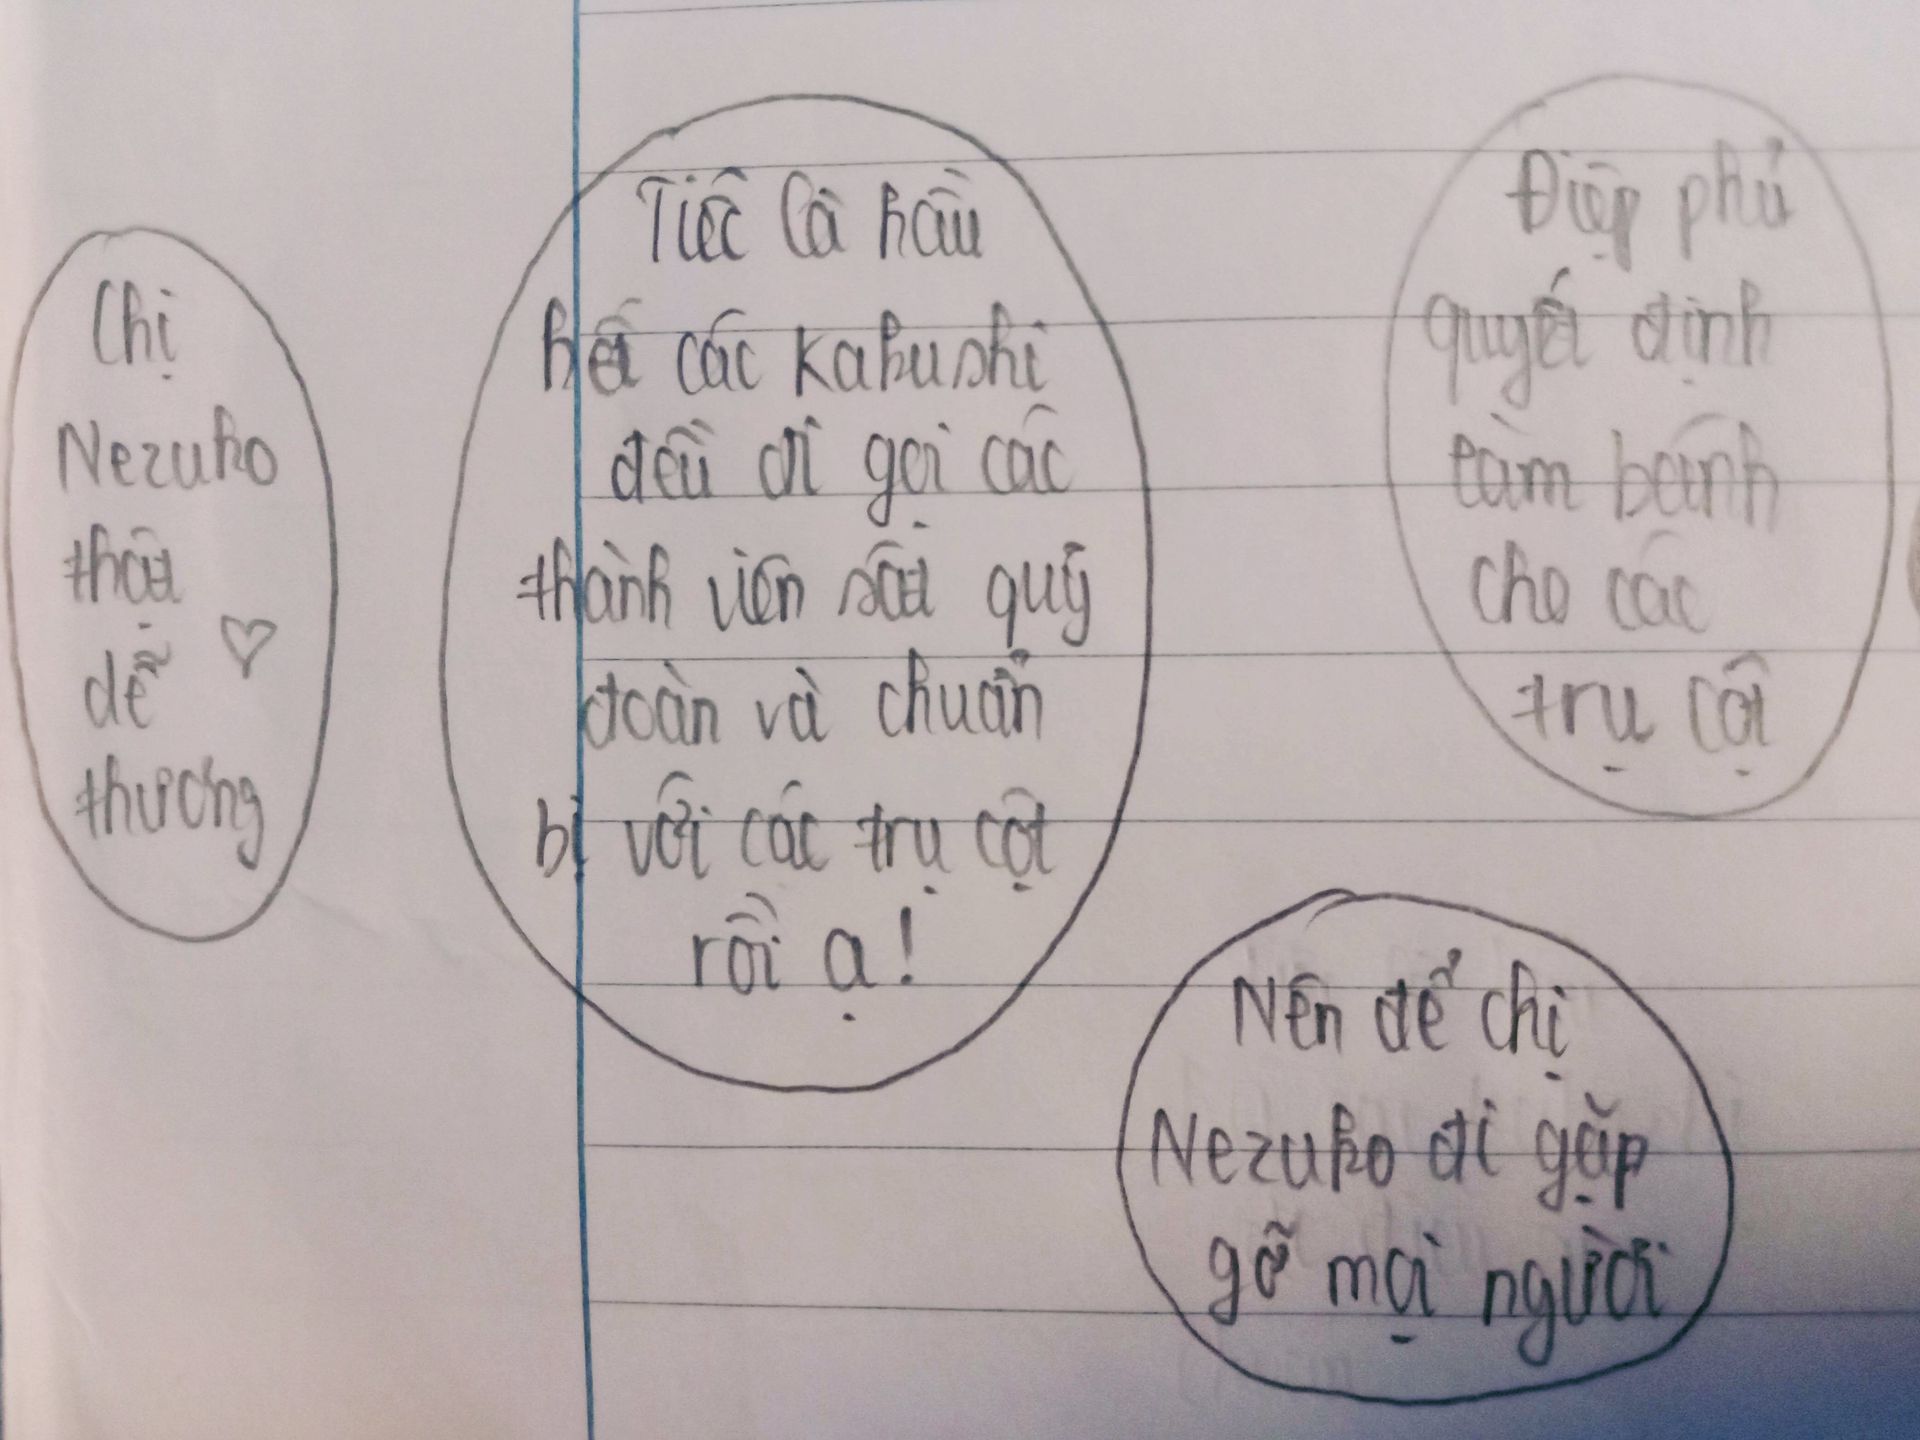 Chị
Nezuko
thật
dễ ♡
thương
Tiếc là hầu
hết các Kakushi
đều đi gọi các
thành viên sát quỷ
đoàn và chuẩn
bị với các trụ cột
rồi ạ!
Điệp phủ
quyết định
làm bánh
cho các
trụ cột
Nên để chị
Nezuko đi gặp
gỡ mọi người